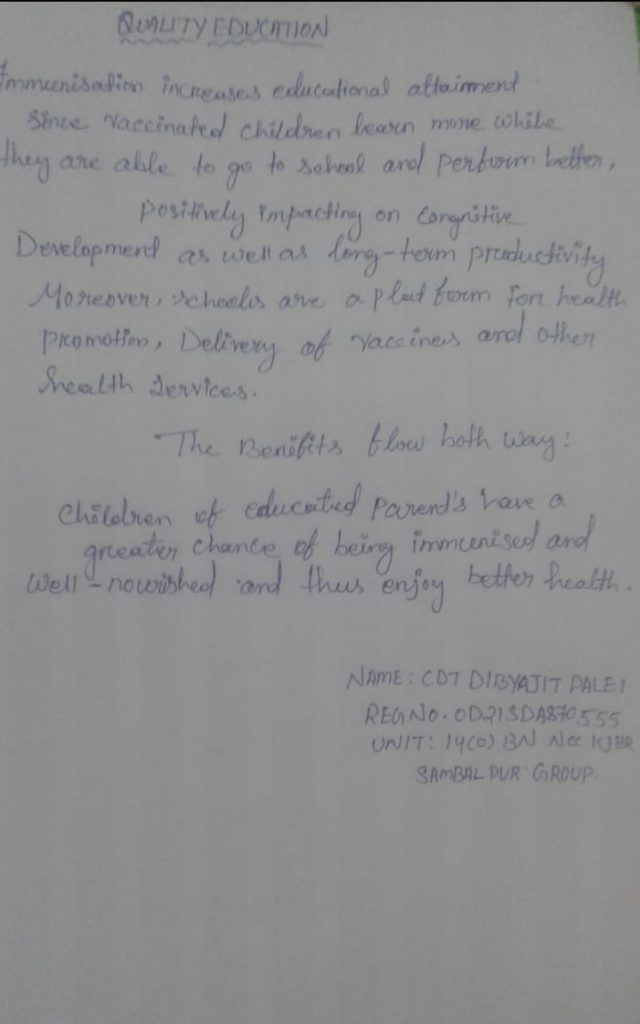 QUALITY EDUCATION
Immunisation increases educational attainment
since vaccinated children learn more while
they are able to go to school and perform better,
positively impacting on congnitive
Development as well as long-term productivity
Moreover, schools are a platform for health
promotion, Delivery of vaccines and other
health services.
The Benifits flow both way:
Children of educated parend's have a
greater chance of being immunised and
well-nourished and thus enjoy better health.
NAME: CDT DIBYAJIT PALEI
REGNO. OD21SDA870555
UNIT: 14(O) BN NCC KJHR
SAMBALPUR GROUP.